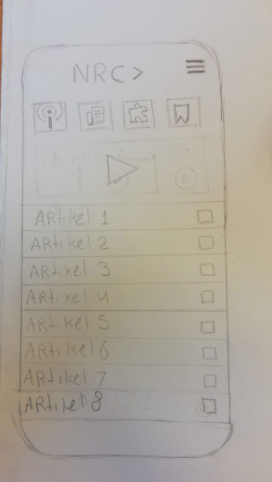 NRC>
ARtikel 1
ARtikel 2
ARtikel 3
ARtikel 4
ARtikel 5
ARtikel 6
ARtikel 7
ARtikel 8